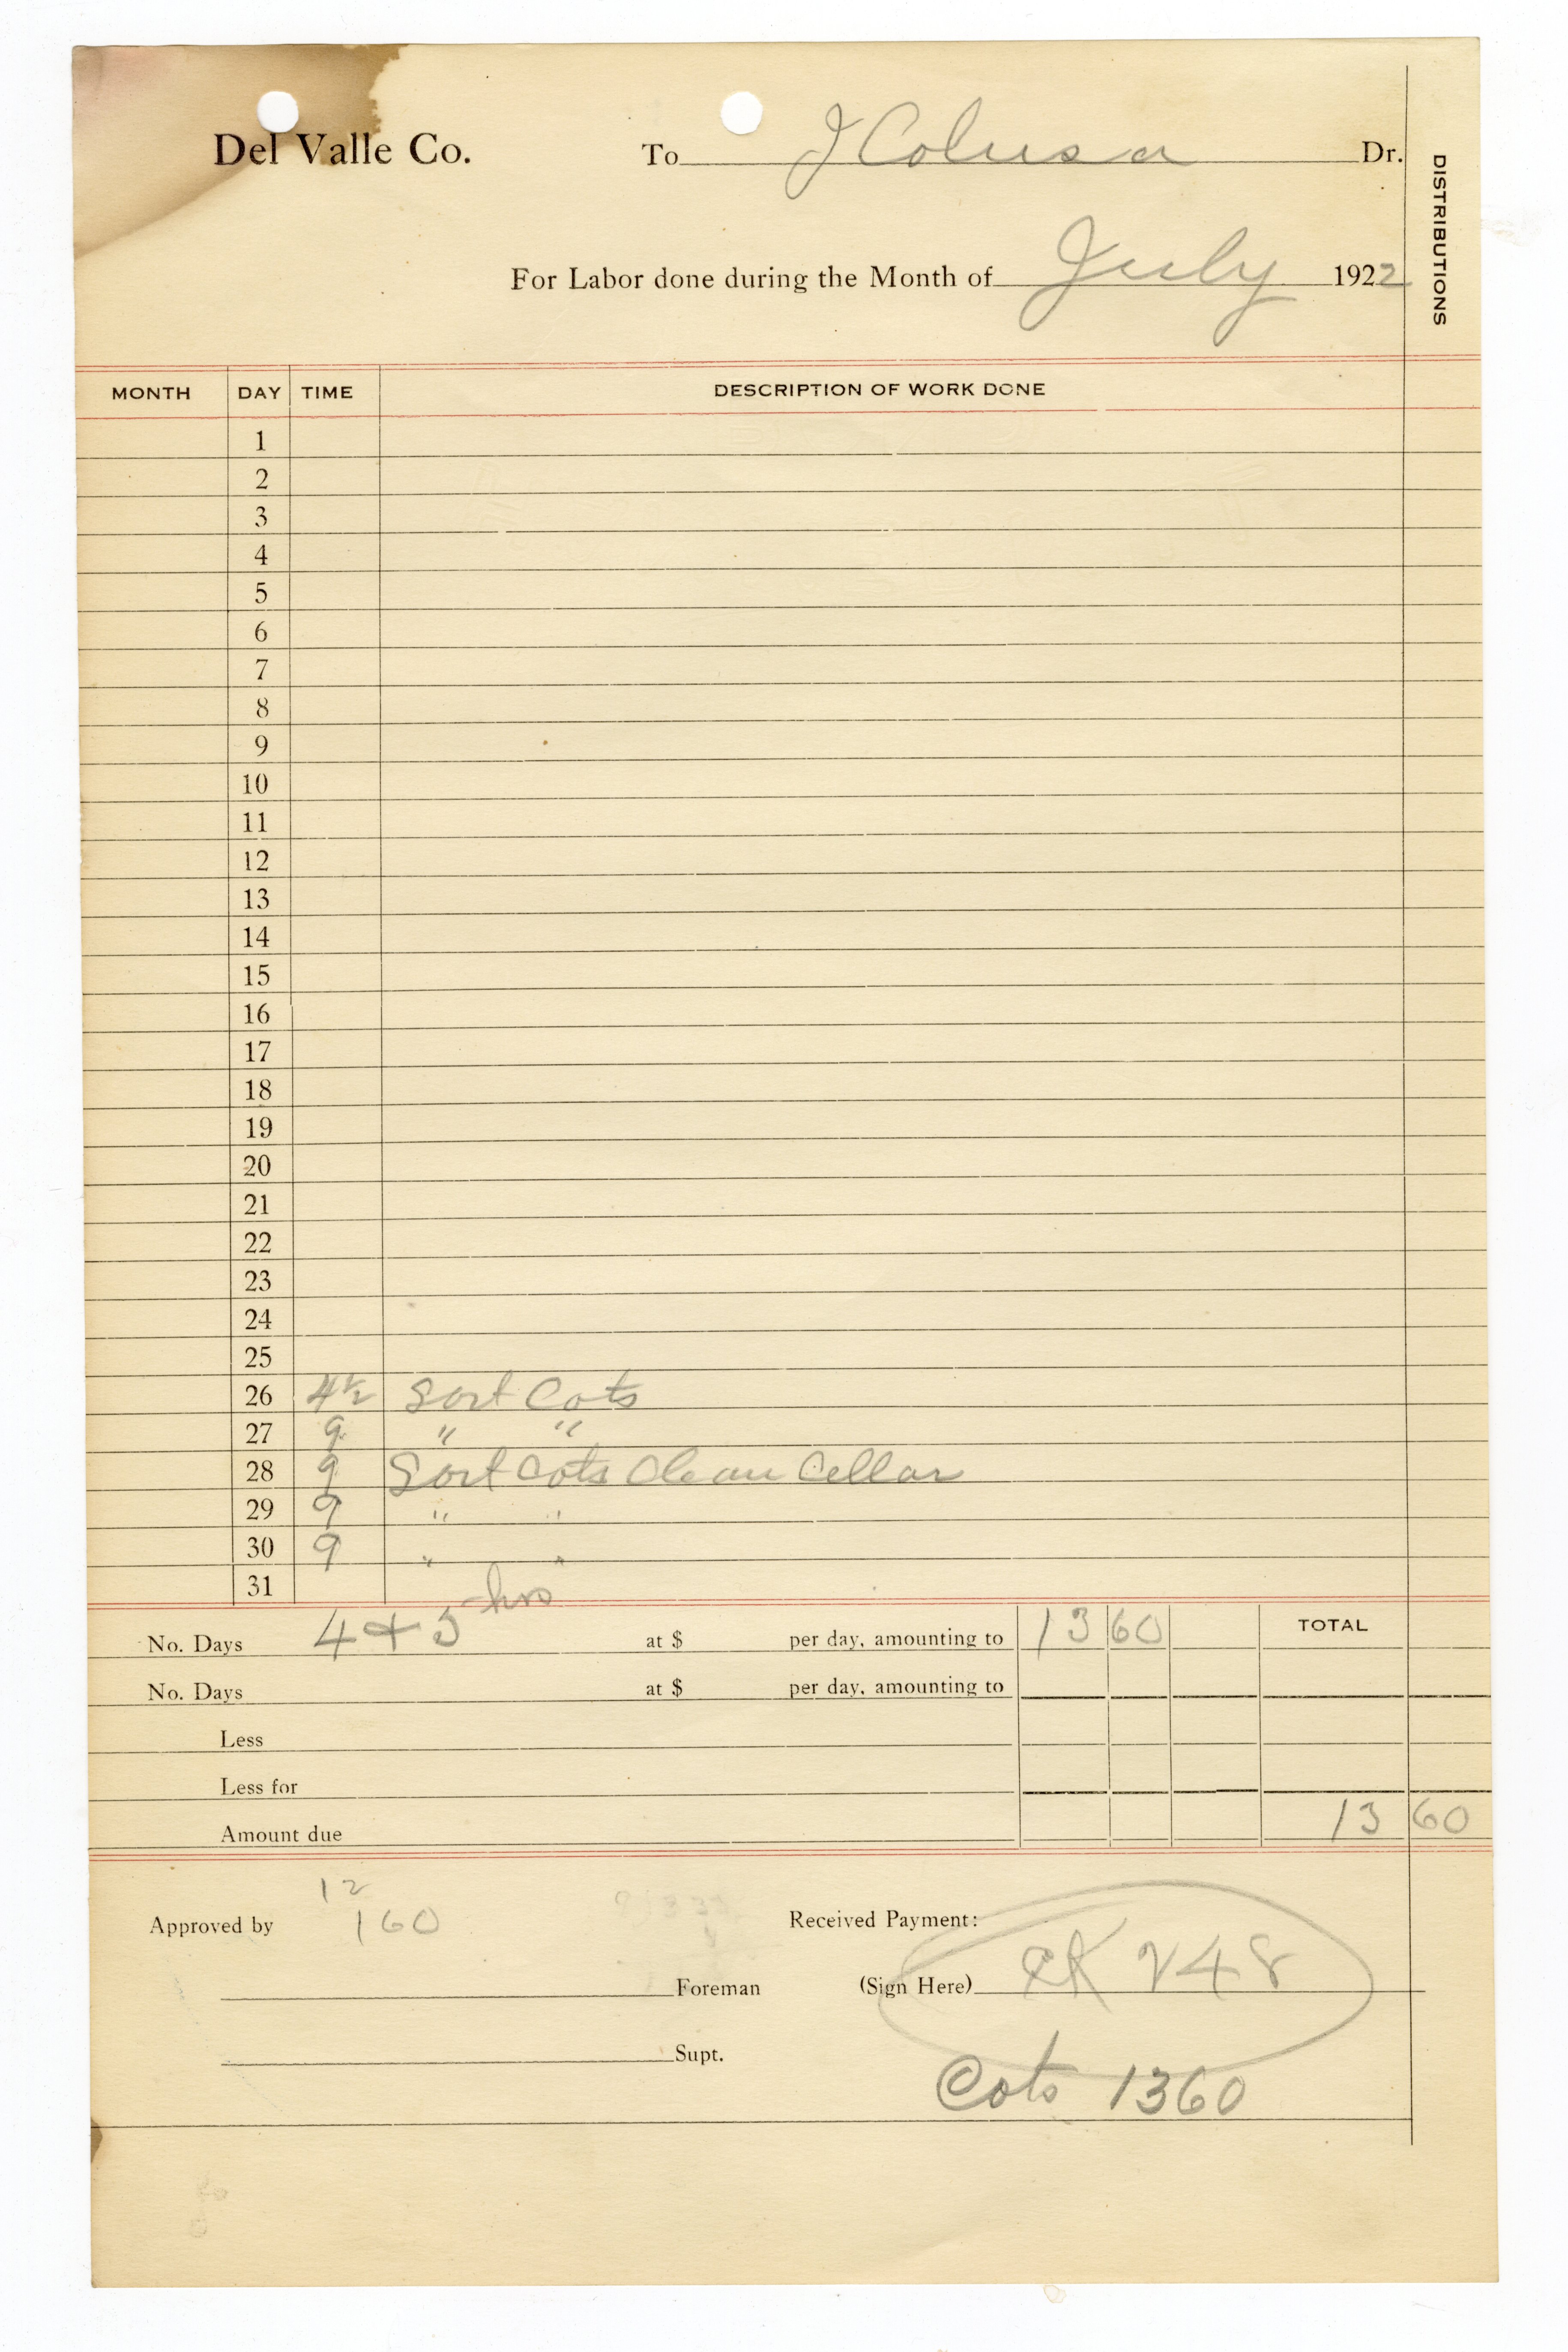 Del Valle Co. To J Colusa Dr.
DISTRIBUTIONS
For Labor done during the Month of July 1922
MONTH DAY TIME DESCRIPTION OF WORK DONE
1
2
3
4
5
6
7
8
9
10
11
12
13
14
15
16
17
18
19
20
21
22
23
24
25
26 4½ Sort Cots
27 9 " "
28 9 Sort Cots Clean Cellar
29 9 " "
30 9 " "
31
No. Days 4 + 5 hrs at $ per day, amounting to 13 60 TOTAL
No. Days at $ per day, amounting to
Less
Less for
Amount due 13 60
12
Approved by 160 Received Payment:
Foreman (Sign Here) CK 248
Supt.
Cots 1360